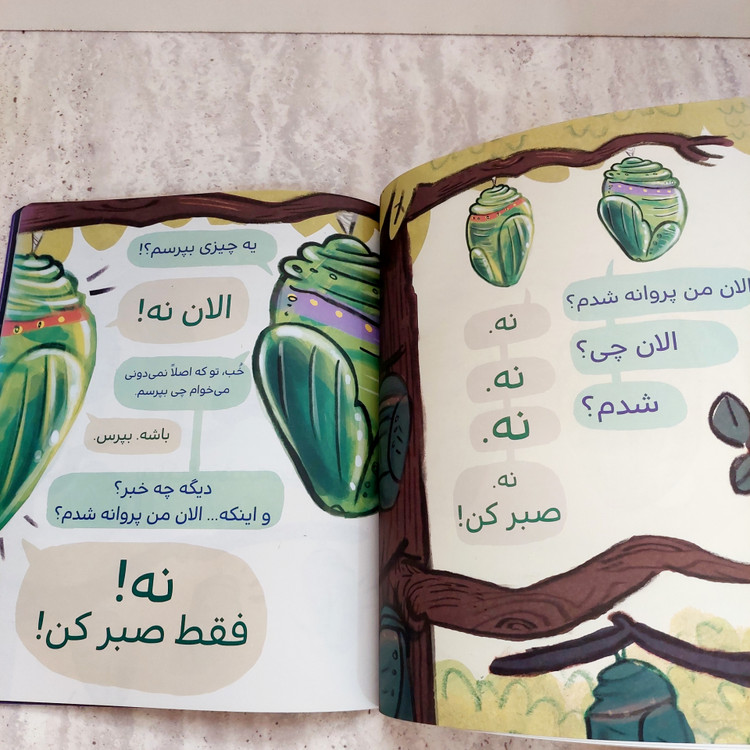 یه چیزی بپرسم؟!
الان نه!
خُب، تو که اصلاً نمی‌دونی
می‌خوام چی بپرسم.
باشه. بپرس.
دیگه چه خبر؟
و اینکه... الان من پروانه شدم؟
نه!
فقط صبر کن!
الان من پروانه شدم؟
نه.
الان چی؟
نه.
شدم؟
نه.
نه.
صبر کن!